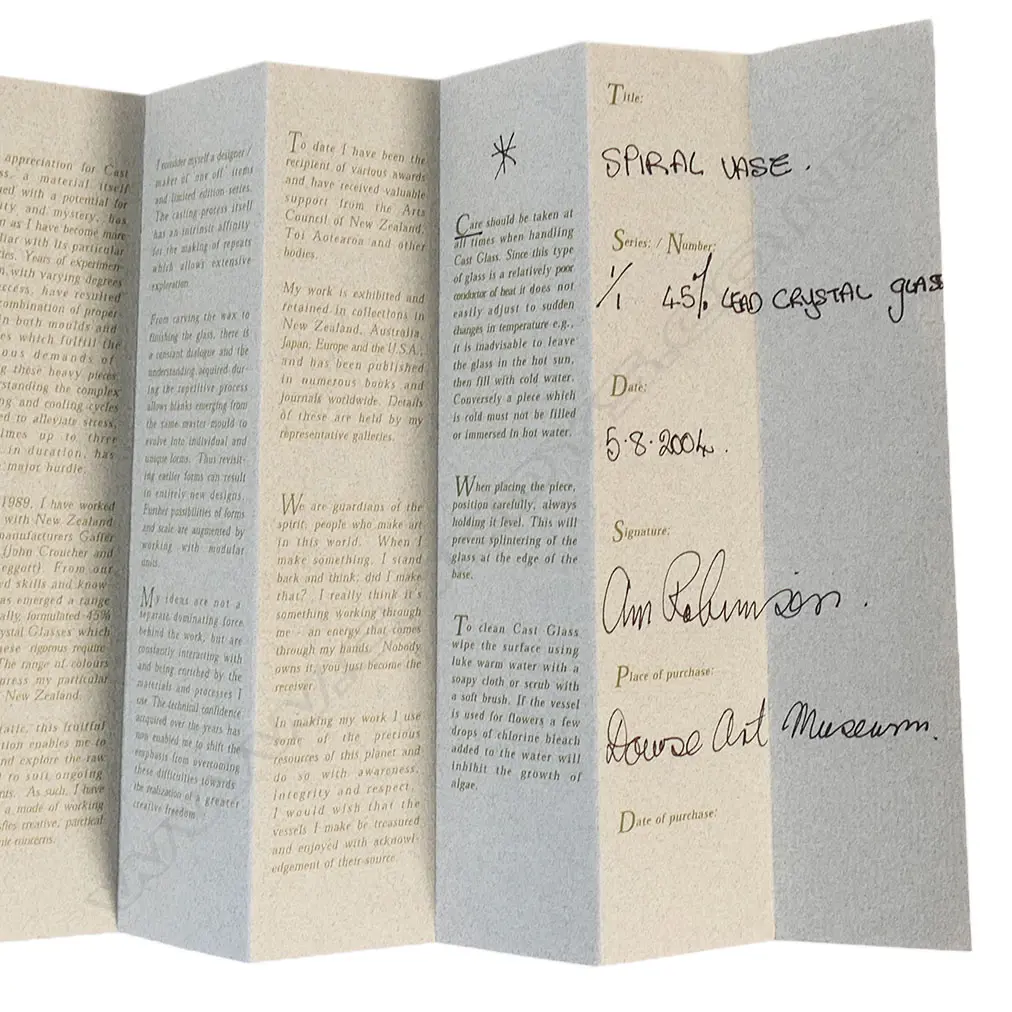 appreciation for Cast
a material itself
with a potential for
and mystery, has
as I have become more
with its particular
Years of experimen-
with varying degrees
have resulted
combination of proper
in both moulds and
which fulfill the
demands of
these heavy pieces.
the complex
and cooling cycles
to alleviate stress,
up to three
in duration, has
major hurdle.
1989, I have worked
with New Zealand
manufacturers Gaffer
(John Croucher and
From our
skills and know-
emerged a range
formulated 45%
Crystal Glasses which
rigorous require
The range of colours
my particular
New Zealand.
this fruitful
enables me to
and explore the raw
to suit ongoing
As such, I have
a mode of working
creative, practical
concerns.
I consider myself a designer /
maker of 'one off' items
and limited edition series.
The casting process itself
has an intrinsic affinity
for the making of repeats
which allows extensive
exploration.
From carving the wax to
finishing the glass, there is
a constant dialogue and the
understanding acquired dur-
ing the repetitive process
allows blanks emerging from
the same master mould to
evolve into individual and
unique forms. Thus revisit-
ing earlier forms can result
in entirely new designs.
Further possibilities of forms
and scale are augmented by
working with modular
units.
My ideas are not a
separate dominating force
behind the work, but are
constantly interacting with
and being enriched by the
materials and processes I
use. The technical confidence
acquired over the years has
now enabled me to shift the
emphasis from overcoming
these difficulties towards
the realization of a greater
creative freedom
To date I have been the
recipient of various awards
and have received valuable
support from the Arts
Council of New Zealand,
Toi Aotearoa and other
bodies.
My work is exhibited and
retained in collections in
New Zealand, Australia,
Japan, Europe and the U.S.A.,
and has been published
in numerous books and
journals worldwide. Details
of these are held by my
representative galleries.
We are guardians of the
spirit; people who make art
in this world. When I
make something, I stand
back and think; did I make
that? I really think it's
something working through
me - an energy that comes
through my hands. Nobody
owns it, you just become the
receiver.
In making my work I use
some of the precious
resources of this planet and
do so with awareness,
integrity and respect.
I would wish that the
vessels I make be treasured
and enjoyed with acknowl-
edgement of their source.
*
Care should be taken at
all times when handling
Cast Glass. Since this type
of glass is a relatively poor
conductor of heat it does not
easily adjust to sudden
changes in temperature e.g.,
it is inadvisable to leave
the glass in the hot sun,
then fill with cold water.
Conversely a piece which
is cold must not be filled
or immersed in hot water.
When placing the piece,
position carefully, always
holding it level. This will
prevent splintering of the
glass at the edge of the
base.
To clean Cast Glass
wipe the surface using
luke warm water with a
soapy cloth or scrub with
a soft brush. If the vessel
is used for flowers a few
drops of chlorine bleach
added to the water will
inhibit the growth of
algae.
Title:
SPIRAL VASE.
Series: / Number:
1/1 45% LEAD CRYSTAL GLASS
Date:
5.8.2004.
Signature:
Ann Robinson.
Place of purchase:
Dowse Art Museum.
Date of purchase: